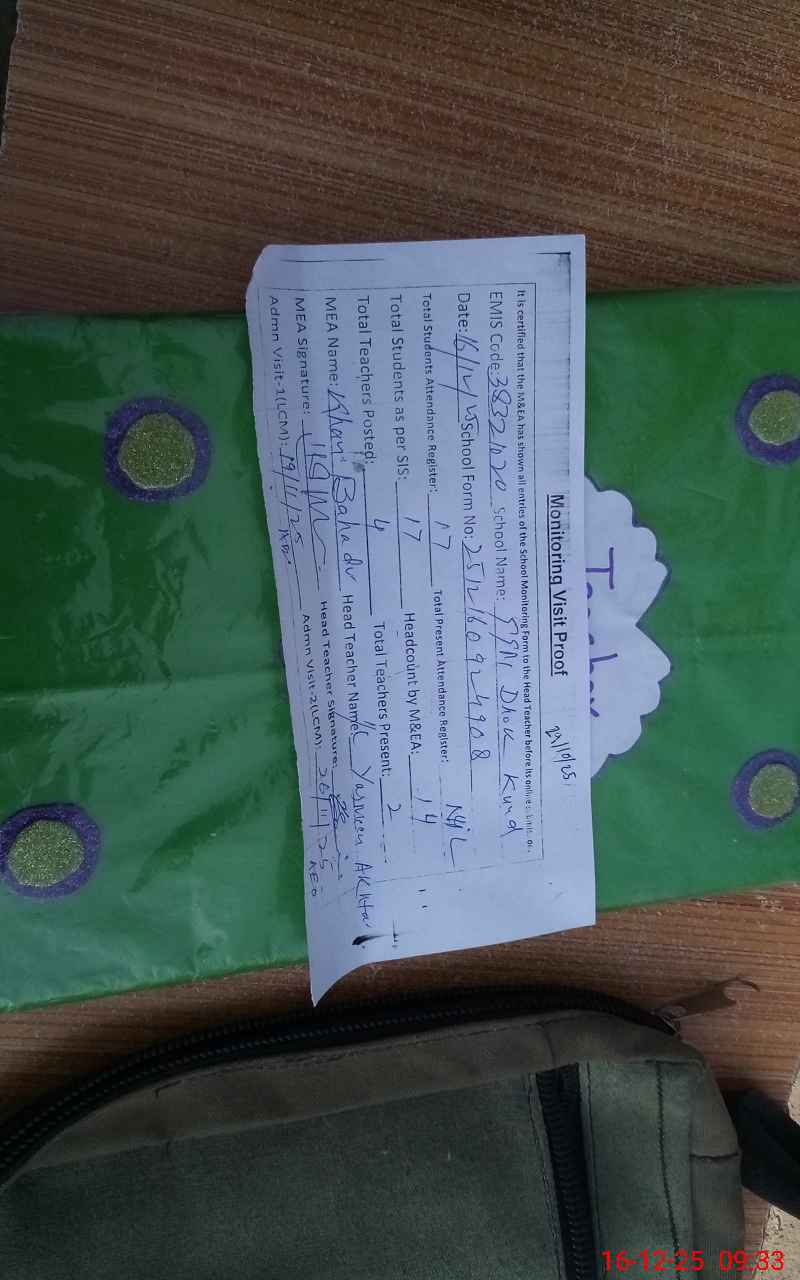 Monitoring Visit Proof
29/10/25
It is certified that the M&EA has shown all entries of the School Monitoring Form to the Head Teacher before its online submission.
EMIS Code: 38321020 School Name: GGPS Dhok Kund
Date: 16/12/25 School Form No: 25121609224908
Total Students Attendance Register: 17 Total Present Attendance Register: NiL
Total Students as per SIS: 17 Headcount by M&EA: 14
Total Teachers Posted: 4 Total Teachers Present: 2
MEA Name: Khan Bahadur Head Teacher Name: Yasmeen Akhtar
MEA Signature: Head Teacher Signature:
Admn Visit-1(LCM): 19/11/25 Admn Visit-2(LCM): 26/11/25 AEO
Teacher
16-12-25 09:33